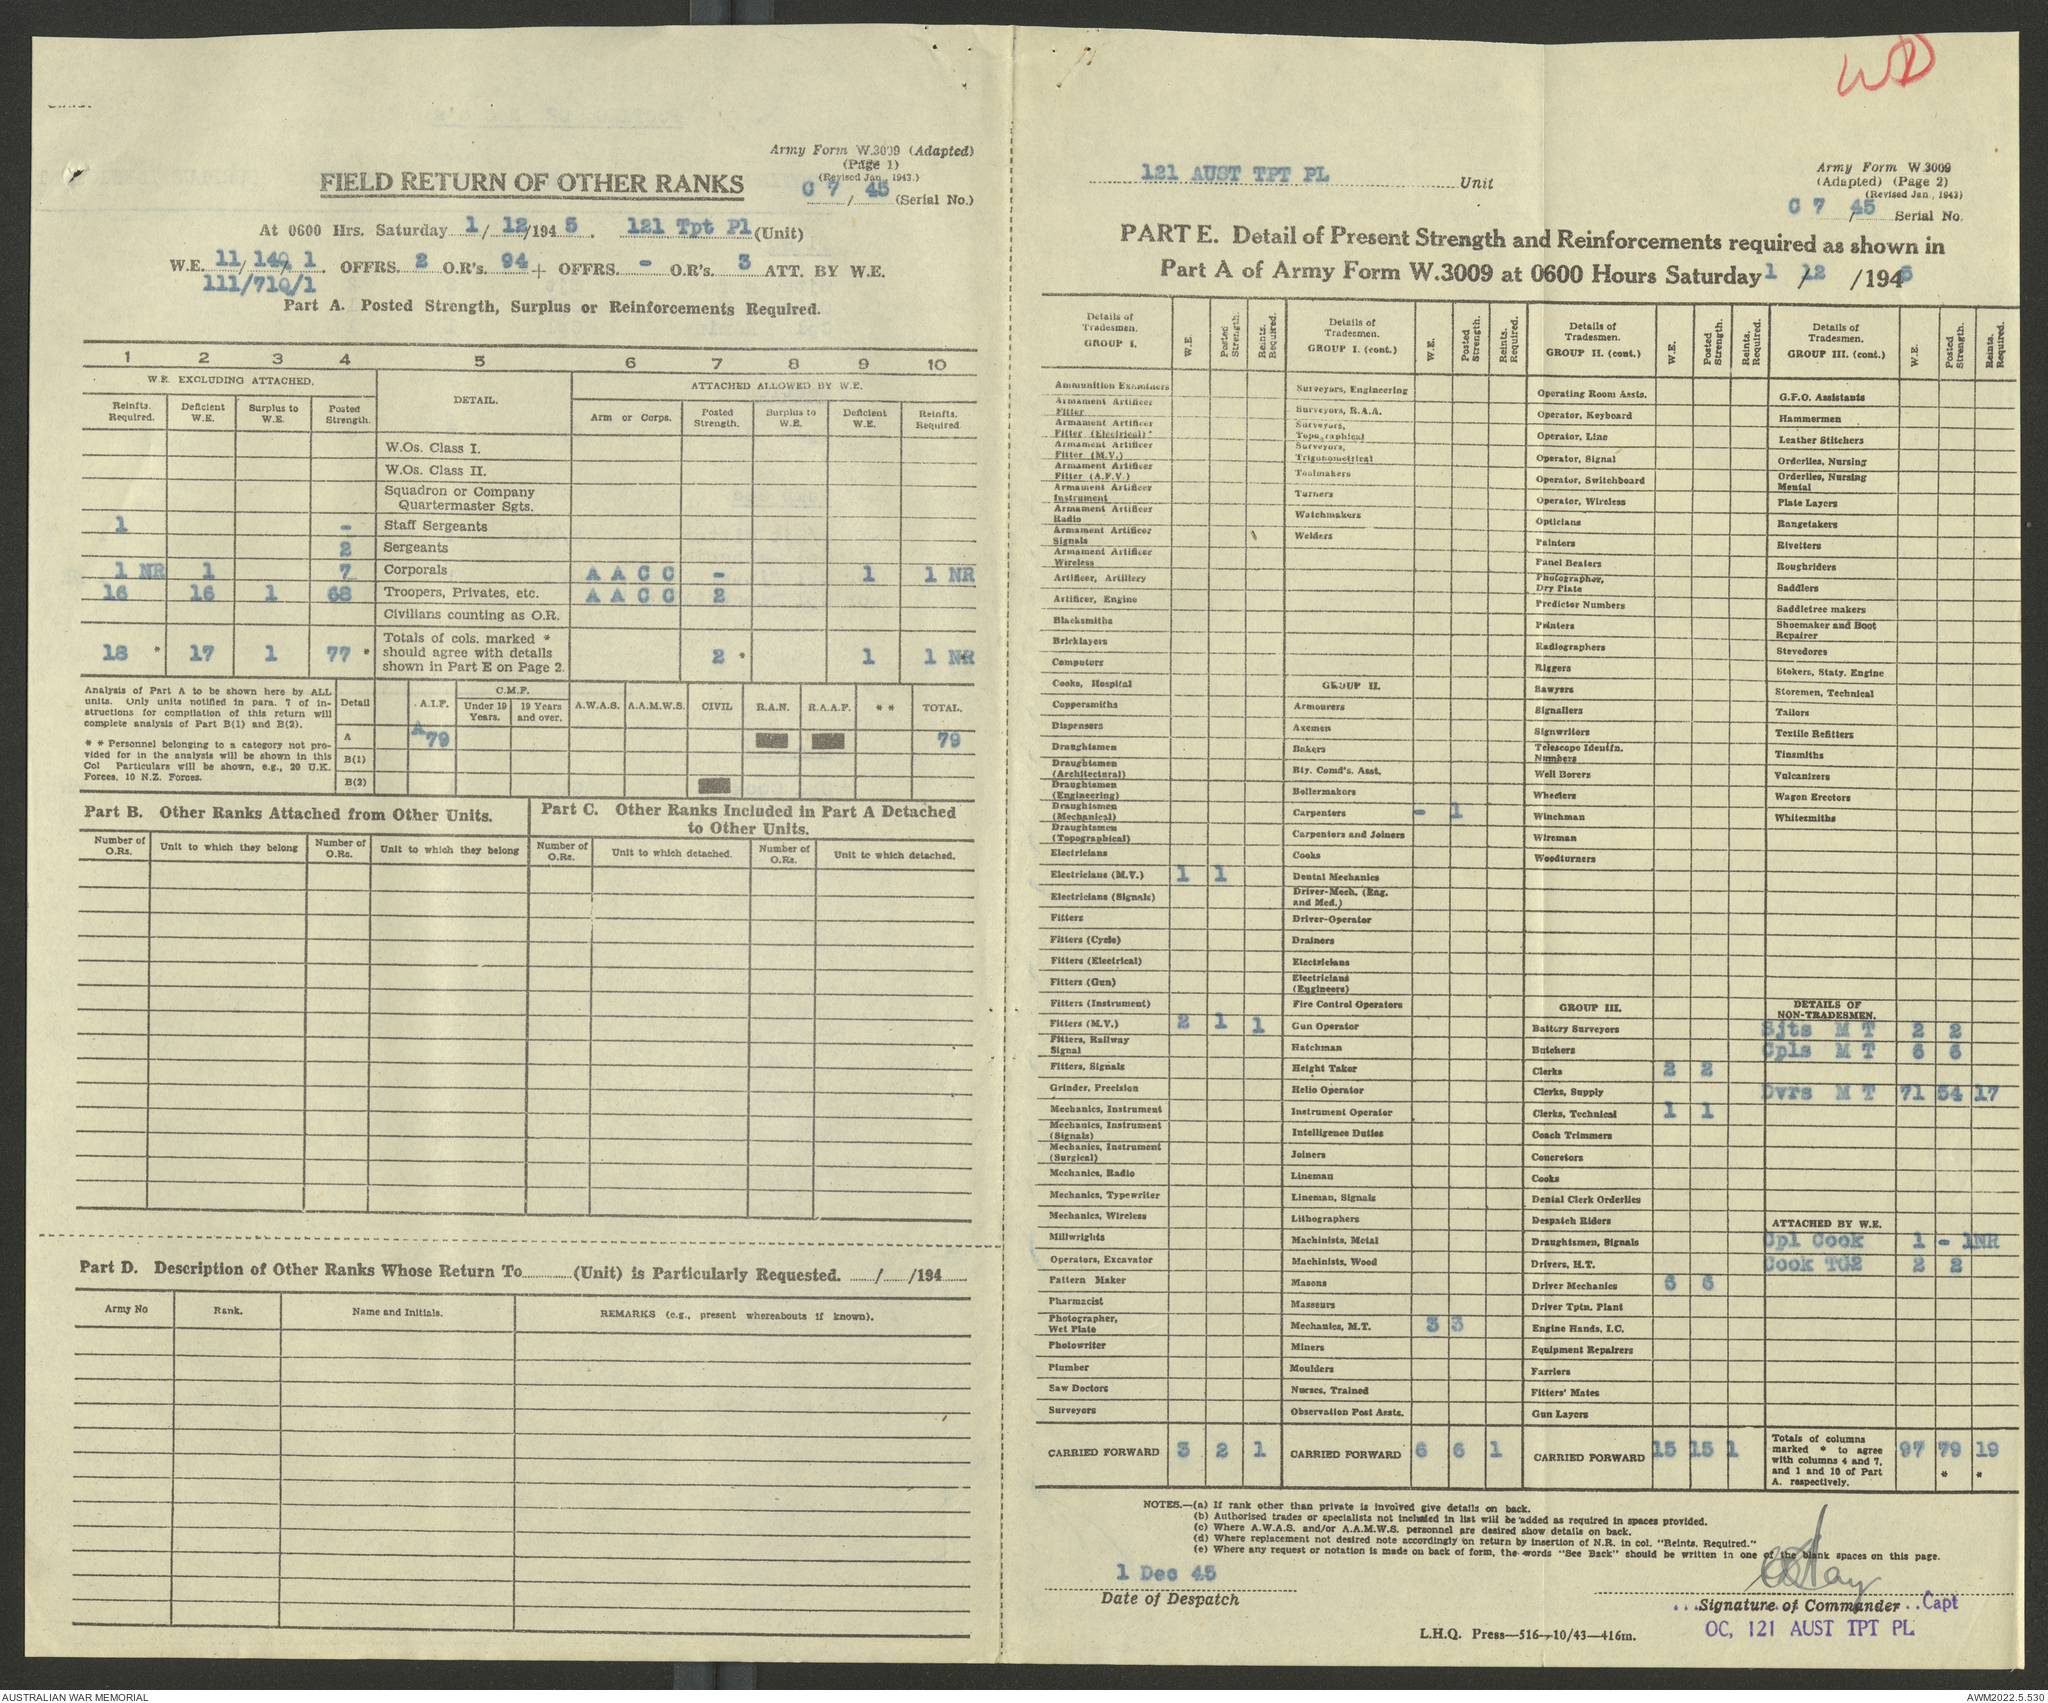 WD
Army Form W.3009 (Adapted)
(Page 1)
(Revised Jan., 1943.)
FIELD RETURN OF OTHER RANKS
C 7 / 45 (Serial No.)
At 0600 Hrs. Saturday 1 / 12 /194 5 . 121 Tpt Pl (Unit)
W.E. 11/ 140/ 1. OFFRS. 2 O.R's. 94 + OFFRS. - O.R's. 3 ATT. BY W.E.
111/710/1
Part A. Posted Strength, Surplus or Reinforcements Required.
1 2 3 4 5 6 7 8 9 10
W.E. EXCLUDING ATTACHED. DETAIL. ATTACHED ALLOWED BY W.E.
Reinfts. Required. Deficient W.E. Surplus to W.E. Posted Strength. Arm or Corps. Posted Strength. Surplus to W.E. Deficient W.E. Reinfts. Required.
W.Os. Class I.
W.Os. Class II.
Squadron or Company
Quartermaster Sgts.
1 - Staff Sergeants
2 Sergeants
1 NR 1 7 Corporals A A C C - 1 1 NR
16 16 1 68 Troopers, Privates, etc. A A C C 2
Civilians counting as O.R.
Totals of cols. marked *
18 * 17 1 77 * should agree with details 2 * 1 1 NR *
shown in Part E on Page 2.
Analysis of Part A to be shown here by ALL
units. Only units notified in para. 7 of in-
structions for compilation of this return will
complete analysis of Part B(1) and B(2).
* * Personnel belonging to a category not pro-
vided for in the analysis will be shown in this
Col Particulars will be shown, e.g., 20 U.K.
Forces, 10 N.Z. Forces.
Detail A.I.F. C.M.F. Under 19 Years. 19 Years and over. A.W.A.S. A.A.M.W.S. CIVIL R.A.N. R.A.A.F. * * TOTAL.
A A 79 79
B(1)
B(2)
Part B. Other Ranks Attached from Other Units.
Part C. Other Ranks Included in Part A Detached
to Other Units.
Number of O.Rs. Unit to which they belong Number of O.Rs. Unit to which they belong Number of O.Rs. Unit to which detached. Number of O.Rs. Unit to which detached.
Part D. Description of Other Ranks Whose Return To (Unit) is Particularly Requested. / /194
Army No Rank. Name and Initials. REMARKS (e.g., present whereabouts if known).
121 AUST TPT PL Unit
Army Form W.3009
(Adapted) (Page 2)
(Revised Jan., 1943)
C 7 / 45 Serial No.
PART E. Detail of Present Strength and Reinforcements required as shown in
Part A of Army Form W.3009 at 0600 Hours Saturday 1 / 12 /194 5
Details of Tradesmen. GROUP I. W.E. Posted Strength. Reints. Required.
Ammunition Examiners
Armament Artificer Fitter
Armament Artificer Fitter (Electrical)
Armament Artificer Fitter (M.V.)
Armament Artificer Fitter (A.F.V.)
Armament Artificer Instrument
Armament Artificer Radio
Armament Artificer Signals
Armament Artificer Wireless
Artificer, Artillery
Artificer, Engine
Blacksmiths
Bricklayers
Computors
Cooks, Hospital
Coppersmiths
Dispensers
Draughtsmen
Draughtsmen (Architectural)
Draughtsmen (Engineering)
Draughtsmen (Mechanical)
Draughtsmen (Topographical)
Electricians
Electricians (M.V.) 1 1
Electricians (Signals)
Fitters
Fitters (Cycle)
Fitters (Electrical)
Fitters (Gun)
Fitters (Instrument)
Fitters (M.V.) 2 1 1
Fitters, Railway Signal
Fitters, Signals
Grinder, Precision
Mechanics, Instrument
Mechanics, Instrument (Signals)
Mechanics, Instrument (Surgical)
Mechanics, Radio
Mechanics, Typewriter
Mechanics, Wireless
Millwrights
Operators, Excavator
Pattern Maker
Pharmacist
Photographer, Wet Plate
Photowriter
Plumber
Saw Doctors
Surveyors
CARRIED FORWARD 3 2 1
Details of Tradesmen. GROUP I. (cont.) W.E. Posted Strength. Reints. Required.
Surveyors, Engineering
Surveyors, R.A.A.
Surveyors, Topographical
Surveyors, Trigonometrical
Toolmakers
Turners
Watchmakers
Welders
GROUP II.
Armourers
Axemen
Bakers
Bty. Comd's. Asst.
Boilermakers
Carpenters - 1
Carpenters and Joiners
Cooks
Dental Mechanics
Driver-Mech. (Eng. and Med.)
Driver-Operator
Drainers
Electricians
Electricians (Engineers)
Fire Control Operators
Gun Operator
Hatchman
Height Taker
Helio Operator
Instrument Operator
Intelligence Duties
Joiners
Lineman
Lineman, Signals
Lithographers
Machinists, Metal
Machinists, Wood
Masons
Masseurs
Mechanics, M.T. 3 3
Miners
Moulders
Nurses, Trained
Observation Post Assts.
CARRIED FORWARD 6 6 1
Details of Tradesmen. GROUP II. (cont.) W.E. Posted Strength. Reints. Required.
Operating Room Assts.
Operator, Keyboard
Operator, Line
Operator, Signal
Operator, Switchboard
Operator, Wireless
Opticians
Painters
Panel Beaters
Photographer, Dry Plate
Predictor Numbers
Printers
Radiographers
Riggers
Sawyers
Signallers
Signwriters
Telescope Identfn. Numbers
Well Borers
Wheelers
Winchman
Wireman
Woodturners
GROUP III.
Battery Surveyors
Butchers
Clerks 2 2
Clerks, Supply
Clerks, Technical 1 1
Coach Trimmers
Concretors
Cooks
Dental Clerk Orderlies
Despatch Riders
Draughtsmen, Signals
Drivers, H.T.
Driver Mechanics 6 6
Driver Tptn. Plant
Engine Hands, I.C.
Equipment Repairers
Farriers
Fitters' Mates
Gun Layers
CARRIED FORWARD 15 15 1
Details of Tradesmen. GROUP III. (cont.) W.E. Posted Strength. Reints. Required.
G.F.O. Assistants
Hammermen
Leather Stitchers
Orderlies, Nursing
Orderlies, Nursing Mental
Plate Layers
Rangetakers
Rivetters
Roughriders
Saddlers
Saddletree makers
Shoemaker and Boot Repairer
Stevedores
Stokers, Staty. Engine
Storemen, Technical
Tailors
Textile Refitters
Tinsmiths
Vulcanizers
Wagon Erectors
Whitesmiths
DETAILS OF NON-TRADESMEN.
Sjts M T 2 2
Cpls M T 6 6
Dvrs M T 71 54 17
ATTACHED BY W.E.
Cpl Cook 1 - 1NR
Cook TG2 2 2
Totals of columns marked * to agree with columns 4 and 7, and 1 and 10 of Part A. respectively. 97 79 * 19 *
NOTES.—(a) If rank other than private is involved give details on back.
(b) Authorised trades or specialists not included in list will be added as required in spaces provided.
(c) Where A.W.A.S. and/or A.A.M.W.S. personnel are desired show details on back.
(d) Where replacement not desired note accordingly on return by insertion of N.R. in col. "Reints. Required."
(e) Where any request or notation is made on back of form, the words "See Back" should be written in one of the blank spaces on this page.
1 Dec 45
Date of Despatch
Signature of Commander Capt
OC, 121 AUST TPT PL
L.H.Q. Press—516—10/43—416m.
AUSTRALIAN WAR MEMORIAL
AWM2022.5.530